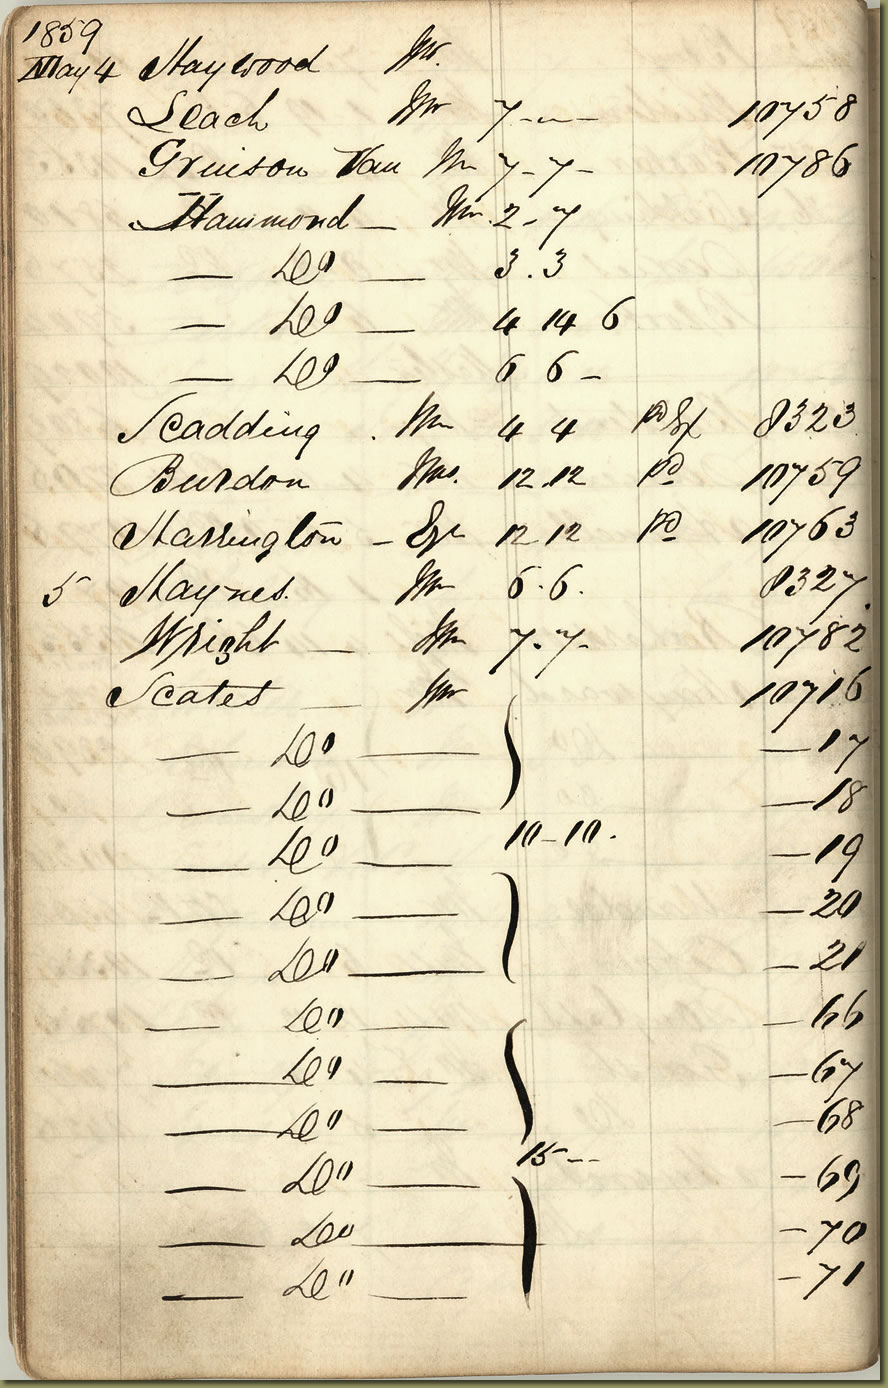 1859
May 4 Haywood Mr.
Leach Mr 7 - - - 10758
Gruison Van Mr 7 - 7 - 10786
Hammond — Mr. 2 - 7
— Do — 3 . 3
— Do — 4 14 6
— Do — 6 6 -
Scadding . Mr 4 4 pd 8323
Burdon Mrs. 12.12 pd 10759
Harrington - Esqr 12 12 pd 10763
5 Haynes. Mr 6 . 6 . 8327
Wright — Mr 7 . 7 - 10782
Scates — Mr 10716
— Do — — 17
— Do — — 18
10 - 10 .
— Do — — 19
— Do — — 20
— Do — — 21
— Do — — 66
— Do — — 67
— Do — — 68
15 - -
— Do — — 69
— Do — — 70
— Do — — 71